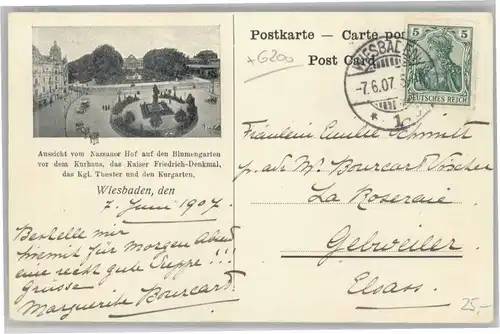 Postkarte — Carte po
Post Card
+G200
WIESBADEN
-7.6.07. 5
* 1
5 5
DEUTSCHES REICH
Aussicht vom Nassauer Hof auf den Blumengarten
vor dem Kurhaus, das Kaiser Friedrich-Denkmal,
das Kgl. Theater und den Kurgarten.
Wiesbaden, den
7. Juni 1907.
Bestelle mir
hiemit für Morgen Abend
eine recht gute Suppe!!!
Grüsse
Marguerite Bourcart.
Fräulein Emilie Schmitt
p. adr. Mr. Bourcart Vischer
La Roseraie
Gebweiler
Elsass.
25.-